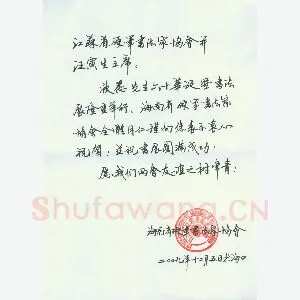 江苏省硬笔书法家协会并
汪寅生主席：
欣悉先生六十华诞暨书法
展隆重举行，海南省硬笔书法家
协会全体同仁谨向你表示衷心
祝贺！并祝书展圆满成功！
愿我们两会友谊之树常青！
Shufawang.CN
海南省硬笔书法家协会
二〇〇九年十二月五日于海口